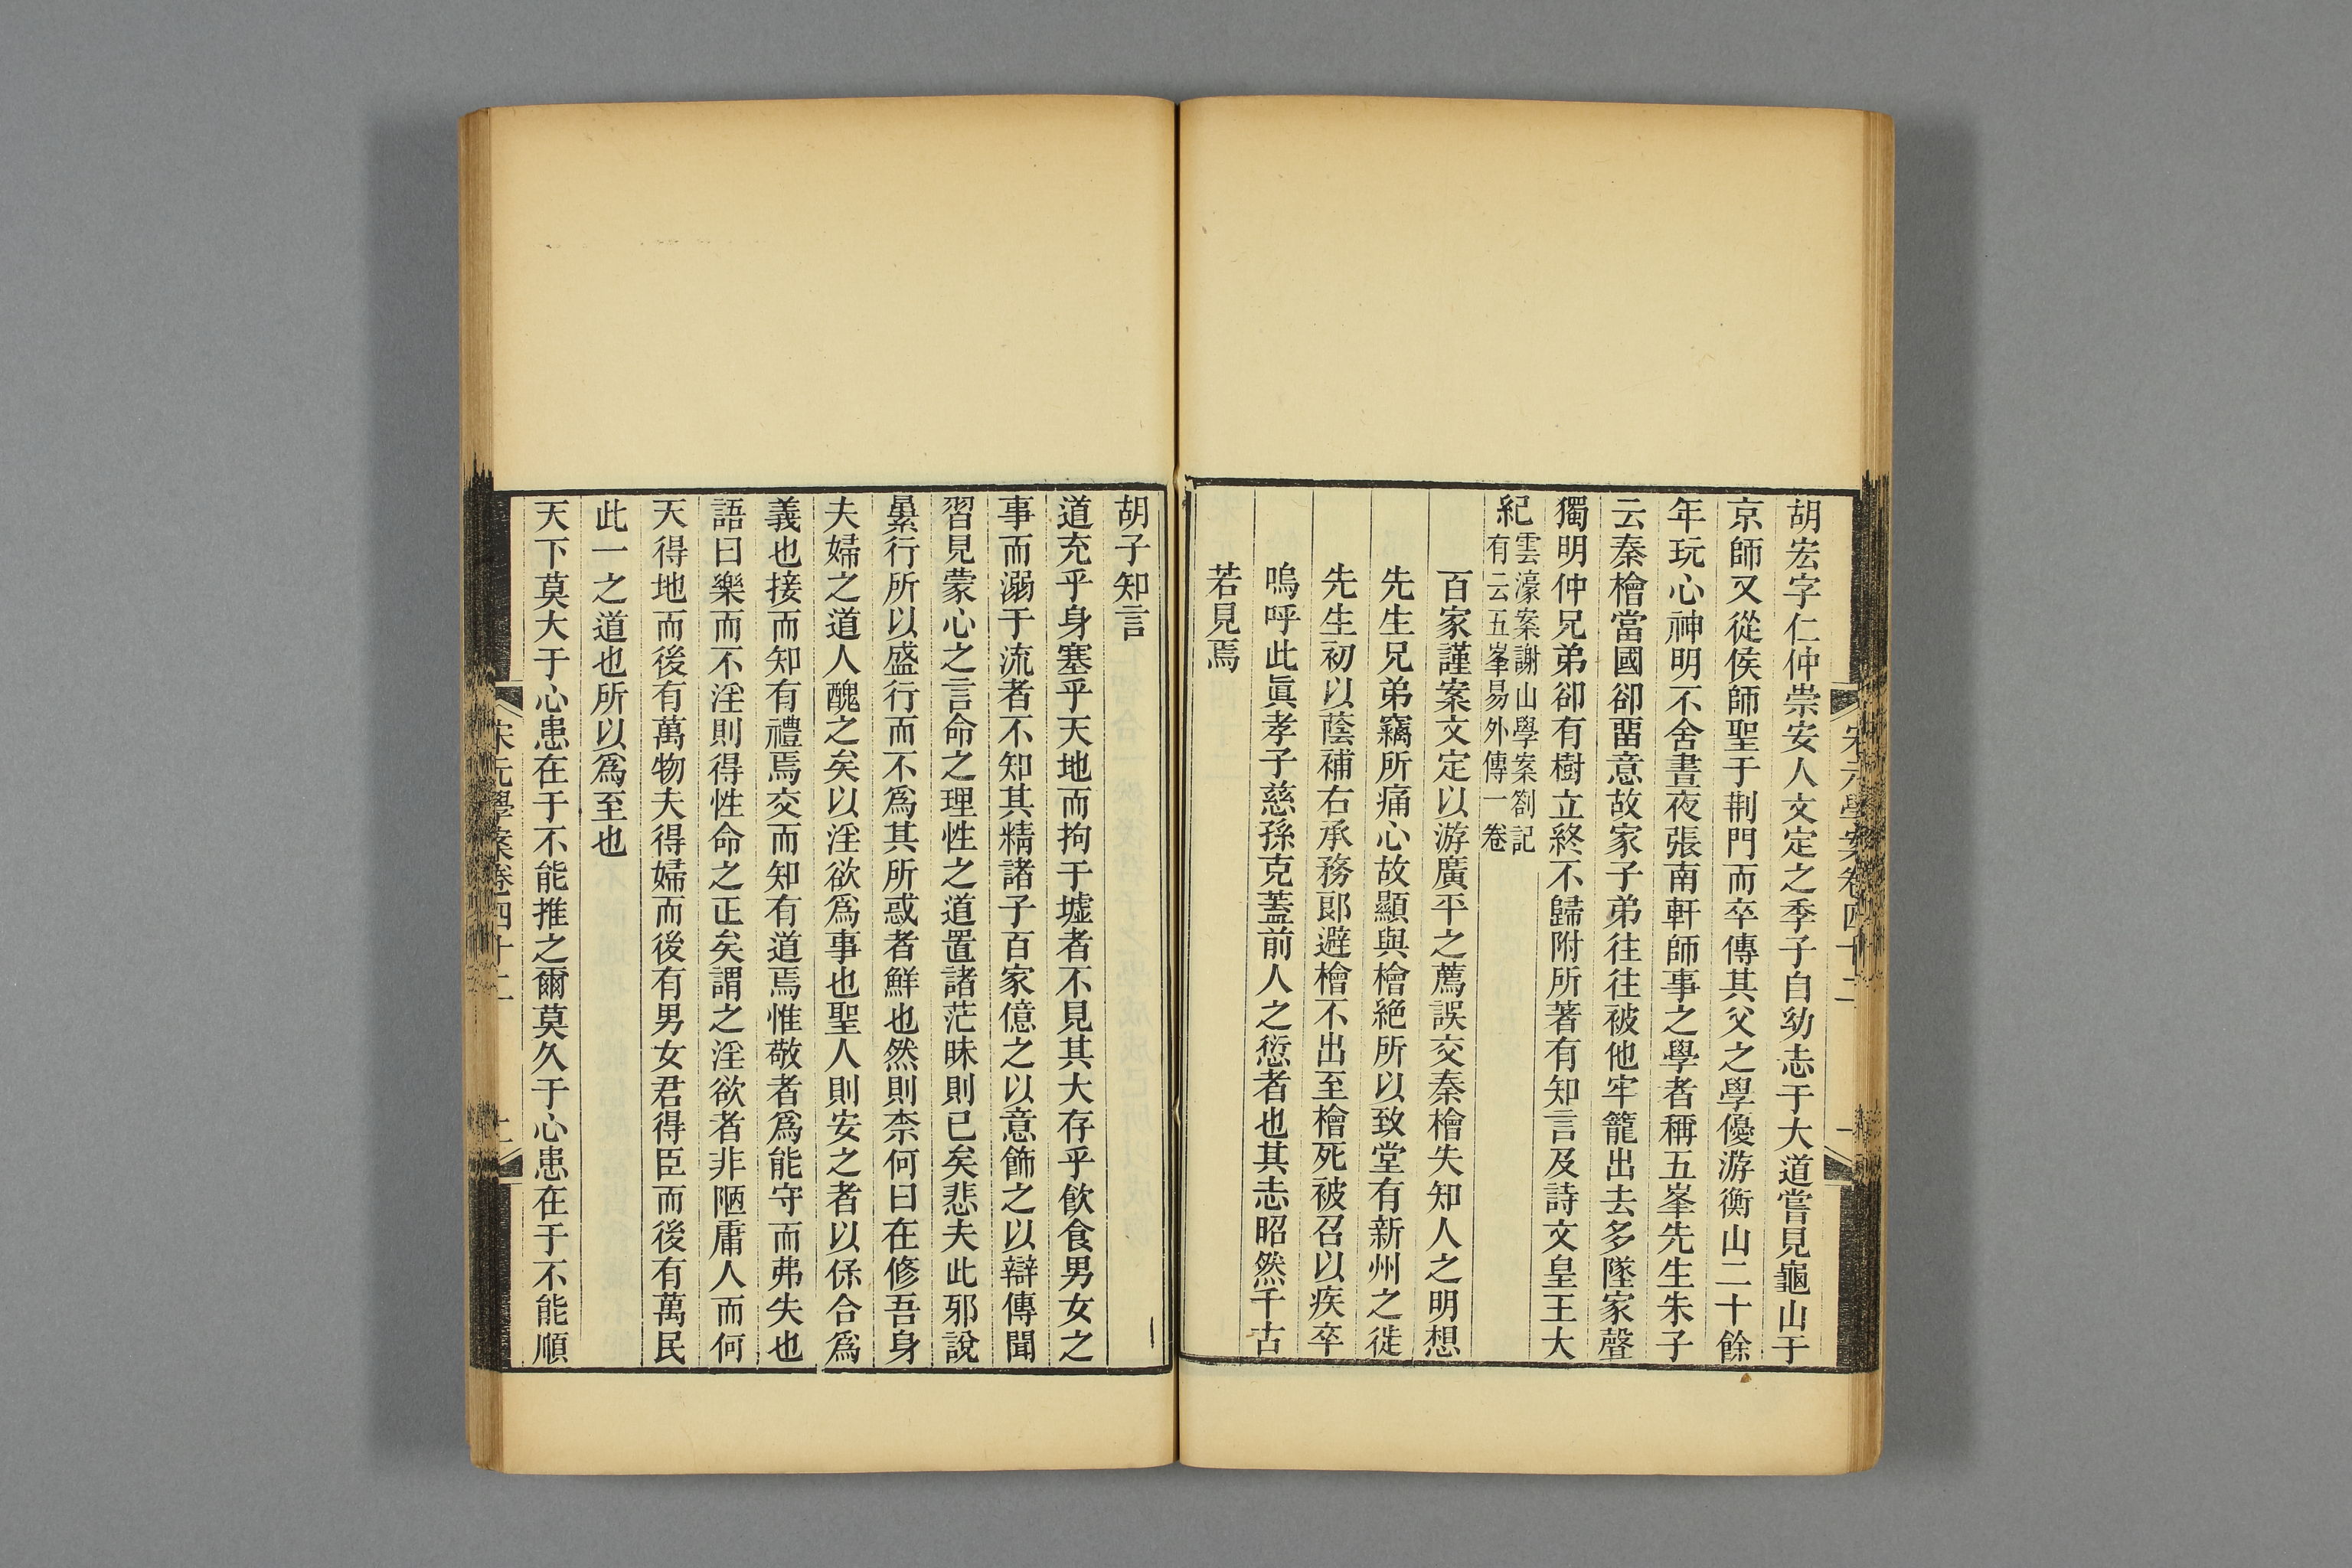 胡宏字仁仲崇安人文定之季子自幼志于大道嘗見龜山于
京師又從侯師聖于荆門而卒傳其父之學優游衡山二十餘
年玩心神明不舍晝夜張南軒師事之學者稱五峯先生朱子
云秦檜當國卻畱意故家子弟往往被他牢籠出去多墜家聲
獨明仲兄弟卻有樹立終不歸附所著有知言及詩文皇王大
紀
雲濠案謝山學案劄記
有云五峯易外傳一卷
百家謹案文定以游廣平之薦誤交秦檜失知人之明想
先生兄弟竊所痛心故顯與檜絶所以致堂有新州之徙
先生初以蔭補右承務郎避檜不出至檜死被召以疾卒
嗚呼此眞孝子慈孫克蓋前人之愆者也其志昭然千古
若見焉
宋元學案卷四十二
一
胡子知言
道充乎身塞乎天地而拘于墟者不見其大存乎飮食男女之
事而溺于流者不知其精諸子百家億之以意飾之以辯傳聞
習見蒙心之言命之理性之道置諸茫昧則已矣悲夫此邪說
暴行所以盛行而不爲其所惑者鮮也然則柰何曰在修吾身
夫婦之道人醜之矣以淫欲爲事也聖人則安之者以保合爲
義也接而知有禮焉交而知有道焉惟敬者爲能守而弗失也
語曰樂而不淫則得性命之正矣謂之淫欲者非陋庸人而何
天得地而後有萬物夫得婦而後有男女君得臣而後有萬民
此一之道也所以爲至也
天下莫大于心患在于不能推之爾莫久于心患在于不能順
宋元學案卷四十二
二